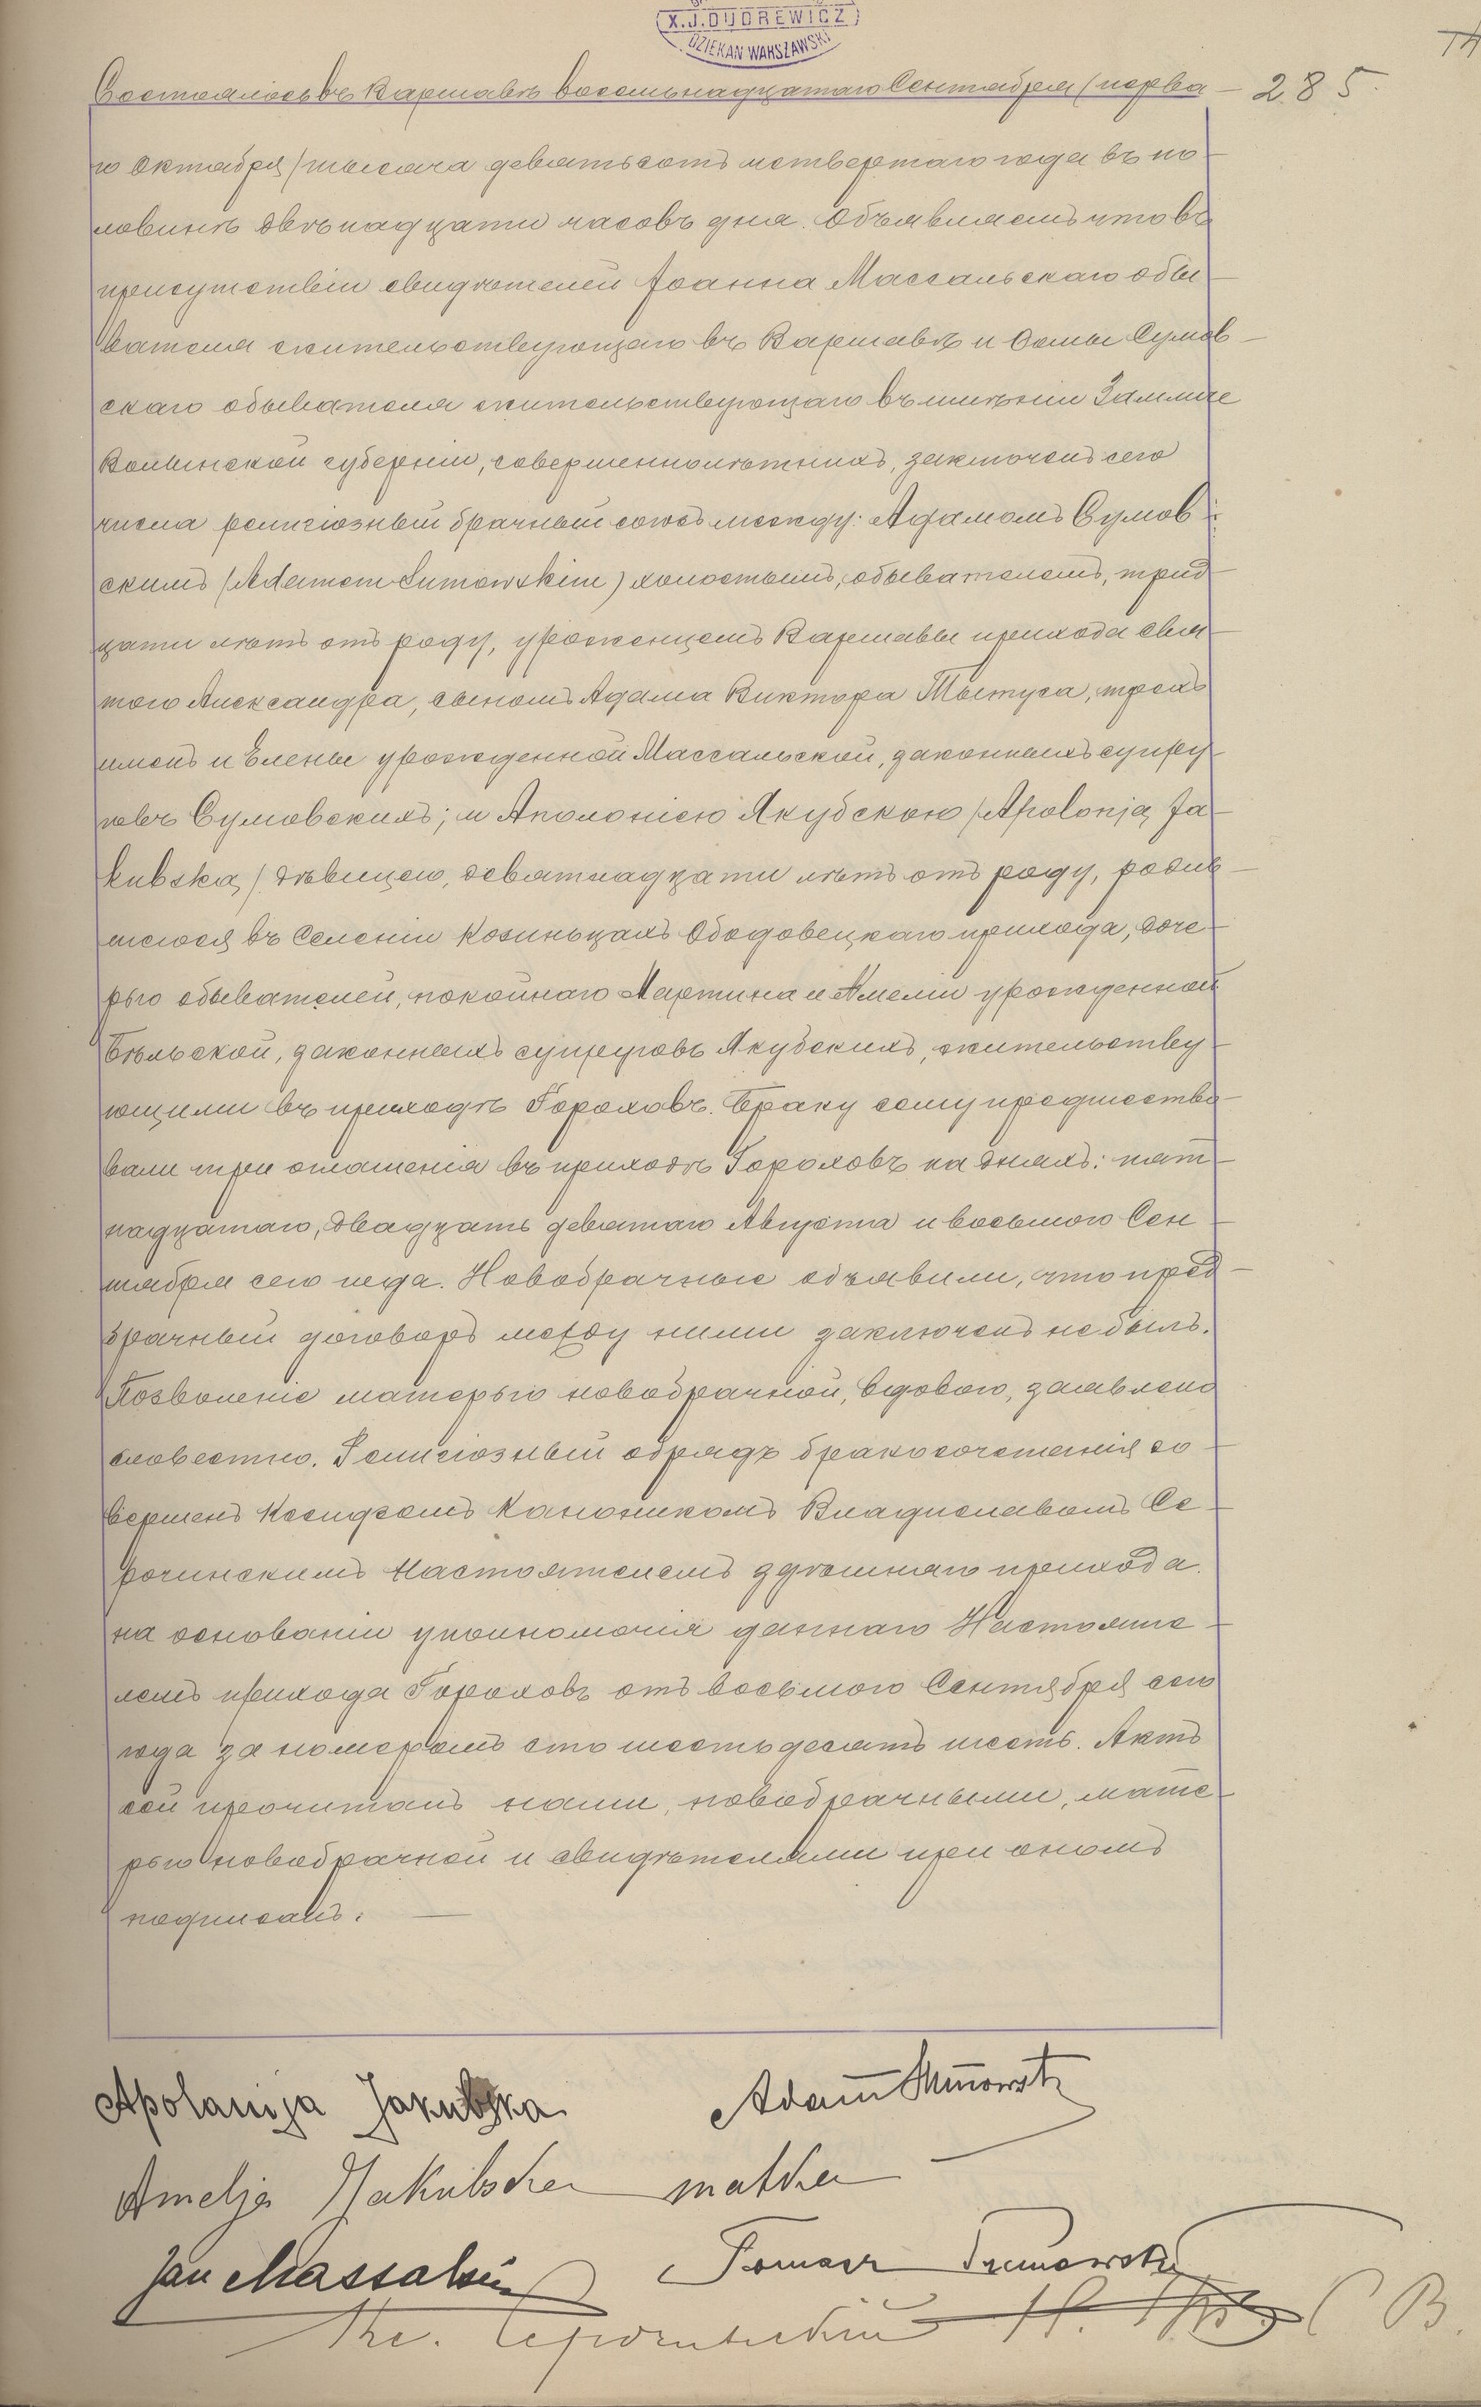 X. J. DUDREWICZ
DZIEKAN WARSZAWSKI
285
Состоялось въ Варшавѣ восемьнадцатаго Сентября (перва
го Октября) тысяча девятьсотъ четвертаго года въ по
ловинѣ двѣнадцати часовъ дня. Объявляемъ что въ
присутствіи свидѣтелей Іоанна Массальскаго обы
вателя жительствующаго въ Варшавѣ и Ѳомы Сумов
скаго обывателя жительствующаго въ имѣніи
Волынской губерніи, совершеннолѣтнихъ, заключенъ сего
числа религіозный брачный союзъ между: Адамомъ Сумов
скимъ (Adamem Sumowskim) холостымъ, обывателемъ, трид
цати лѣтъ отъ роду, уроженцемъ Варшавы прихода свя
того Александра, сыномъ Адама Виктора Тытуса, трехъ
именъ и Елены урожденной Массальской, законныхъ супру
говъ Сумовскихъ; и Аполоніею Якубскою (Apolonją Ja
kubską) дѣвицею, девятнадцати лѣтъ отъ роду, родив
шеюся въ селеніи Козинцахъ Ободовецкаго прихода, доче
рью обывателей, покойнаго Мартина и Амеліи урожденной
Бѣльской, законныхъ супруговъ Якубскихъ, жительству
ющими въ приходѣ Гороховъ. Браку сему предшество
вали три оглашенія въ приходѣ Гороховъ на дняхъ: пят
надцатаго, двадцать девятаго Августа и восьмого Сен
тября сего года. Новобрачные объявили, что пред
брачный договоръ между ними заключенъ не былъ.
Позволеніе матерью новобрачной, вдовою, заявлено
словестно. Религіозный обрядъ бракосочетанія со
вершенъ Ксендзомъ Каноникомъ Владиславомъ Се
рочинскимъ Настоятелемъ здѣшняго прихода
на основаніи уполномочія даннаго Настояте
лемъ прихода Гороховъ отъ восьмого Сентября сего
года за номеромъ сто шестьдесятъ шесть. Актъ
сей прочитанъ нами, новобрачными, мате
рью новобрачной и свидѣтелями при ономъ
подписанъ.
Apolanija Jakubska
Adam Sumowski
Amelja Jakubska matka
Jan Massalski
Tomasz Sumowski
Кс. Серочинскій